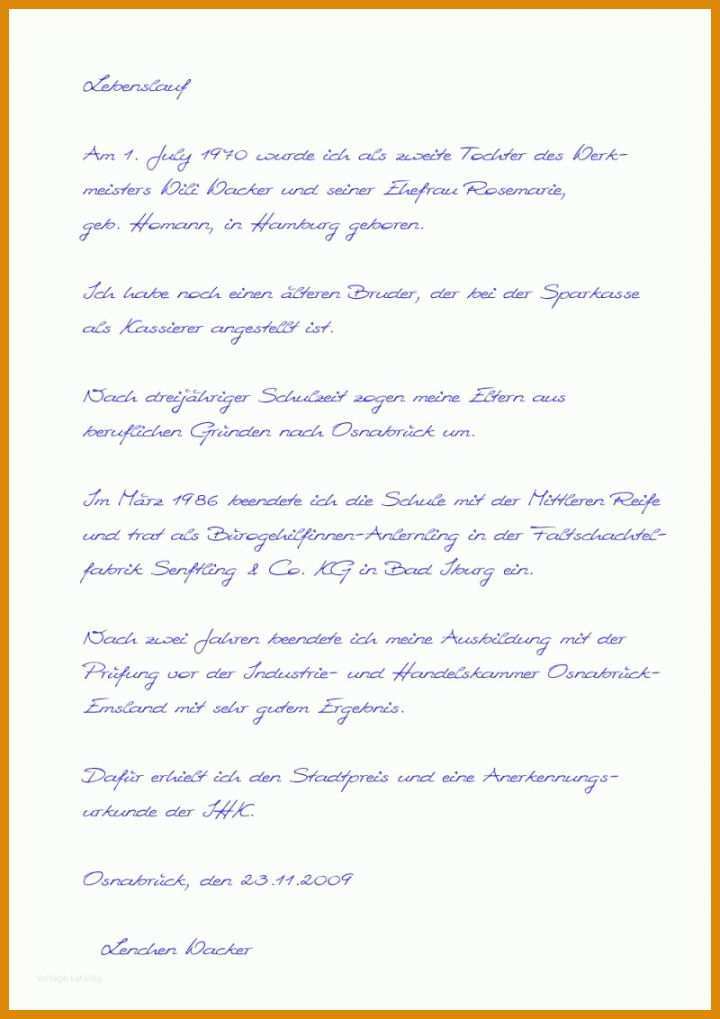 Lebenslauf
Am 1. July 1970 wurde ich als zweite Tochter des Werk-
meisters Wili Wacker und seiner Ehefrau Rosemarie,
geb. Homann, in Hamburg geboren.
Ich habe noch einen älteren Bruder, der bei der Sparkasse
als Kassierer angestellt ist.
Nach dreijähriger Schulzeit zogen meine Eltern aus
beruflichen Gründen nach Osnabrück um.
Im März 1986 beendete ich die Schule mit der Mittleren Reife
und trat als Bürogehilfinnen-Anlernling in der Faltschachtel-
fabrik Senftling & Co. KG in Bad Iburg ein.
Nach zwei Jahren beendete ich meine Ausbildung mit der
Prüfung vor der Industrie- und Handelskammer Osnabrück-
Emsland mit sehr gutem Ergebnis.
Dafür erhielt ich den Stadtpreis und eine Anerkennungs-
urkunde der IHK.
Osnabrück, den 23.11.2009
Lenchen Wacker
vorlage katalog